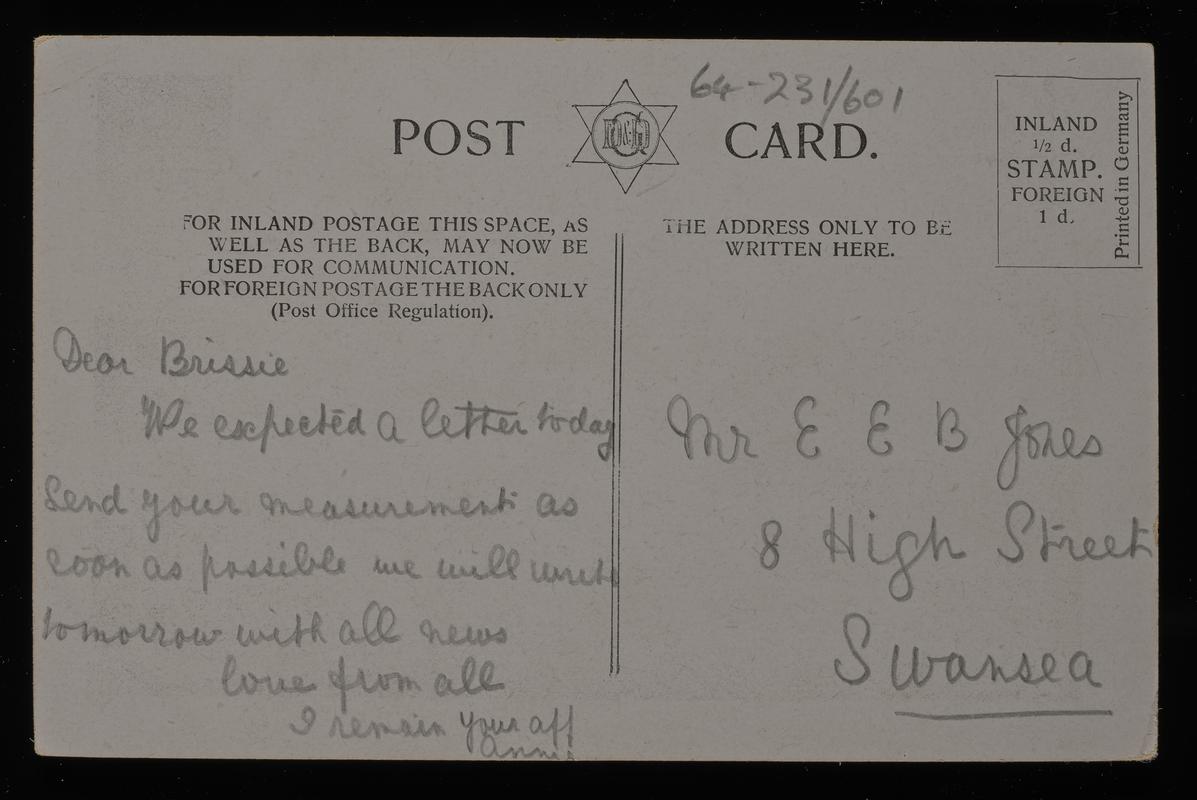 64-231/601
POST CARD.
D&D
INLAND
1/2 d.
STAMP.
FOREIGN
1 d.
Printed in Germany
FOR INLAND POSTAGE THIS SPACE, AS
WELL AS THE BACK, MAY NOW BE
USED FOR COMMUNICATION.
FOR FOREIGN POSTAGE THE BACK ONLY
(Post Office Regulation).
THE ADDRESS ONLY TO BE
WRITTEN HERE.
Dear Brissie
We expected a letter today
Send your measurements as
soon as possible we will write
tomorrow with all news
love from all
I remain your aff
Annie
Mr E E B Jones
8 High Street
Swansea